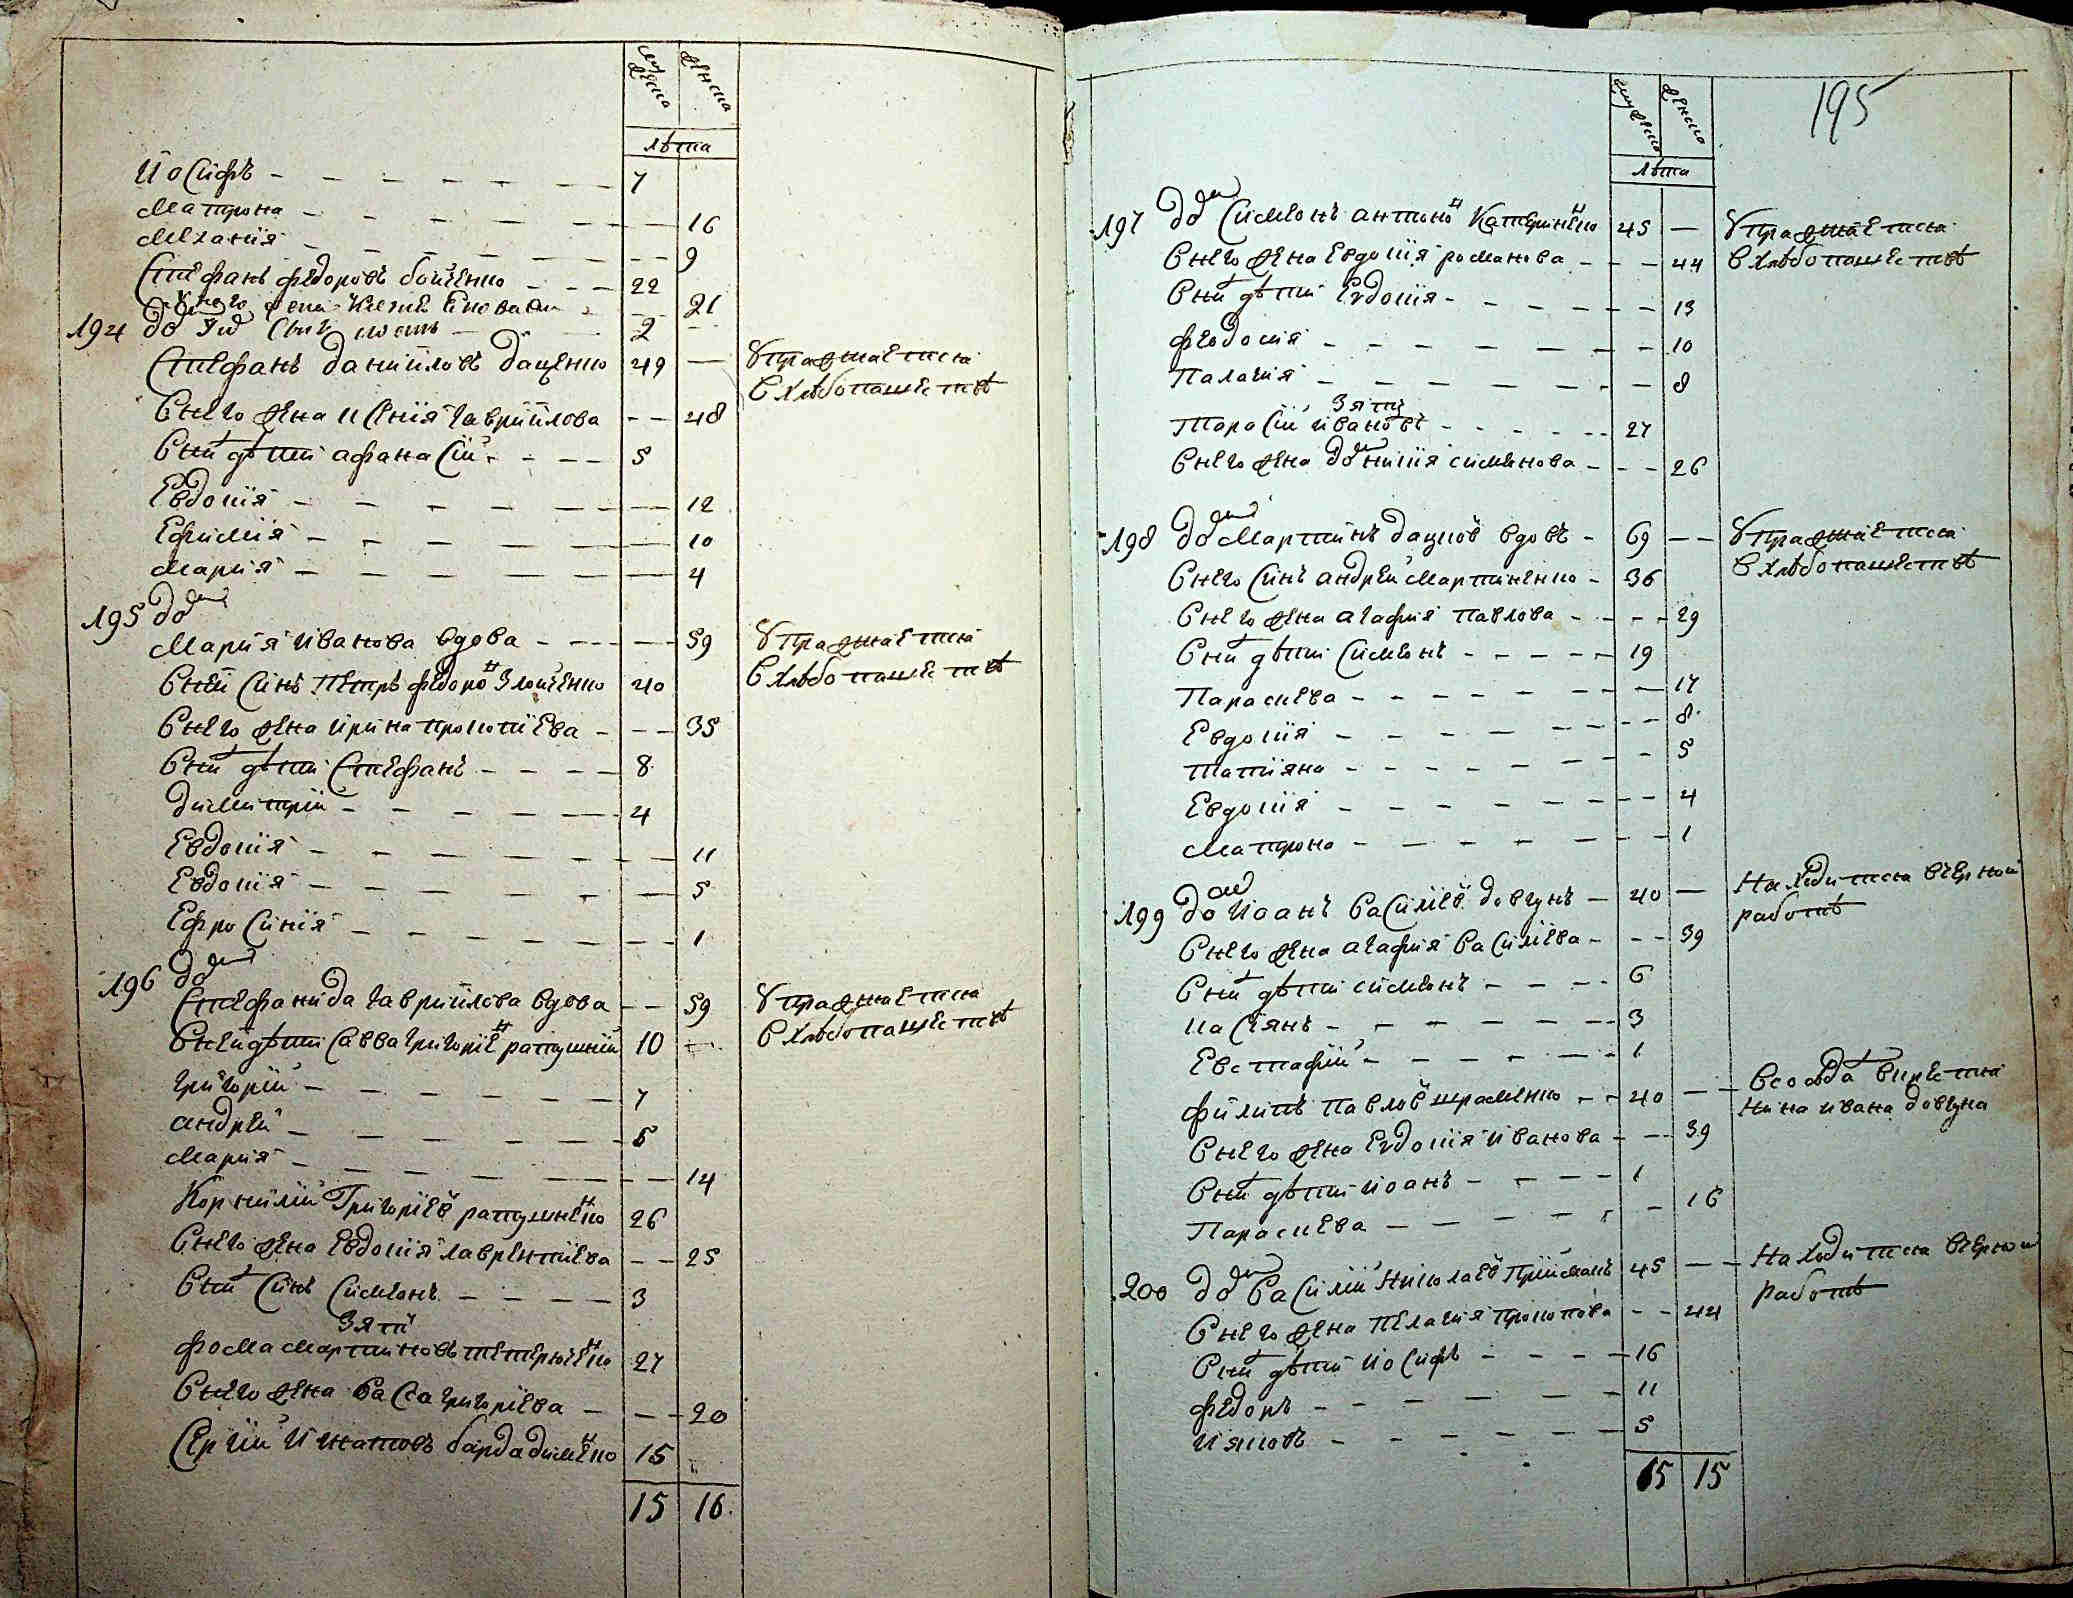 мужеска женска
лѣта
Иосифъ 7
Матрона 16
Меланія 9
Стефанъ Федоровъ бойченко 22
У него жена 21
194 домъ 2
Стефанъ даніиловъ даценко 49 —
Упражняется
В хлѣбопашествѣ
В него жена ксенія гавріилова 48
В них дѣти афанасій 5
Евдокія 12
Ефимія 10
Марія 4
195 домъ
Марія иванова вдова 59
Упражняется
В хлѣбопашествѣ
В ней синъ Петръ федоровъ Злоченко 40
В него жена ирина прокопіева 35
В них дѣти Стефанъ 8
Димитрій 4
Евдокія 11
Евдокія 5
Ефросинія 1
196 домъ
Стефанида гавріилова вдова 59
Упражняется
В хлѣбопашествѣ
В ней дѣти Савва григоріев 10
григорій 7
андрей 5
Марія 14
Корнилій Григоріев рапушненко 26
В него жена Евдокія лаврентіева 25
В них синъ Симеонъ 3
Зять
Фома Мартиновъ тетерюченко 27
В него жена Васса григоріева 20
Сергій Игнатовъ бардадименко 15
15 16
195
мужеско женско
лѣта
197 домъ Симеонъ антонов Катериненко 45 —
Упражняется
В хлѣбопашествѣ
В него жена Евдокія романова 44
В них дѣти Евдокія 13
Феодосія 10
Палагія 8
Зять
Тарасій ивановъ 27
В него жена домникія симеонова 26
198 домъ Мартинъ дацков вдовъ 69 —
Упражняется
В хлѣбопашествѣ
В него синъ андрей Мартиненко 36
В него жена агафия павлова 29
В них дѣти Симеонъ 19
Параскева 17
Евдокія 8
Татіяна 5
Евдокія 4
Матрона 1
199 домъ Иоанъ Василіев довгунъ 40 —
Находится в черной
работѣ
В него жена агафия Василіева 39
В них дѣти симеонъ 6
касіянъ 3
Евстафій 1
Филипъ павлов шраменко 40 —
Нина ивана довгуна
В него жена Евдокія иванова 39
В них дѣти иоанъ 1
Параскева 16
200 домъ Василій Николаев Пріймакъ 45 —
Находится в черной
работѣ
В него жена Пелагія прокопова 44
В них дѣти иосифъ 16
Федоръ 11
Ияковъ 5
15 15